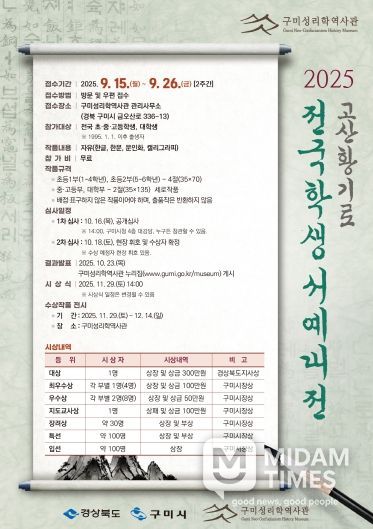 구미성리학역사관
Gumi Neo-Confucianism History Museum
2025
고산황기로
전국학생서예대전
접수기간 | 2025. 9. 15.(월) ~ 9. 26.(금) [2주간]
접수방법 | 방문 및 우편 접수
접수장소 | 구미성리학역사관 관리사무소
(경북 구미시 금오산로 336-13)
참가대상 | 전국 초·중·고등학생, 대학생
※ 1995. 1. 1. 이후 출생자
작품내용 | 자유(한글, 한문, 문인화, 캘리그라피)
참 가 비 | 무료
작품규격
초등1부(1~4학년), 초등2부(5~6학년) - 4절(35×70)
중·고등부, 대학부 - 2절(35×135) 세로작품
배접 표구하지 않은 작품이어야 하며, 출품작은 반환하지 않음
심사일정
1차 심사 : 10. 16.(목), 공개심사
※ 14:00, 구미시청 4층 대강당, 누구든 참관할 수 있음.
2차 심사 : 10. 18.(토), 현장 휘호 및 수상자 확정
※ 수상 예정자 현장 휘호 있음.
결과발표 | 2025. 10. 23.(목)
구미성리학역사관 누리집(www.gumi.go.kr/museum) 게시
시 상 식 | 2025. 11. 29.(토) 14:00
※ 시상식 일정은 변경될 수 있음
수상작품 전시
기 간 : 2025. 11. 29.(토) ~ 12. 14.(일)
장 소 : 구미성리학역사관
시상내역
등 위 시 상 자 시상내역 비 고
대상 1명 상장 및 상금 300만원 경상북도지사상
최우수상 각 부별 1명(4명) 상장 및 상금 100만원 구미시장상
우수상 각 부별 2명(8명) 상장 및 상금 50만원 구미시장상
지도교사상 1명 상패 및 상금 100만원 구미시장상
장려상 약 30명 상장 및 부상 구미시장상
특선 약 100명 상장 및 부상 구미시장상
입선 약 100명 상장 구미시장상
MIDAM
TIMES
good news, good people
경상북도
구미시
구미성리학역사관